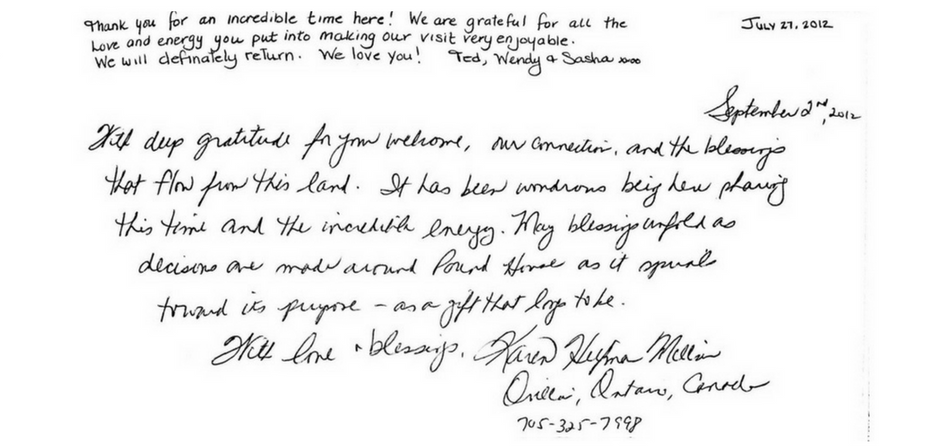 Thank you for an incredible time here! We are grateful for all the
July 27, 2012
love and energy you put into making our visit very enjoyable.
We will definately return. We love you! Ted, Wendy & Sasha xoxo
September 2nd, 2012
With deep gratitude for your welcome, our connection, and the blessings
that flow from this land. It has been wondrous being here sharing
this time and the incredible energy. May blessings unfold as
decisions are made around Pound House as it spirals
toward its purpose – as a gift that longs to be.
With love & blessings, Karen
Orillia, Ontario, Canada
705-325-7998